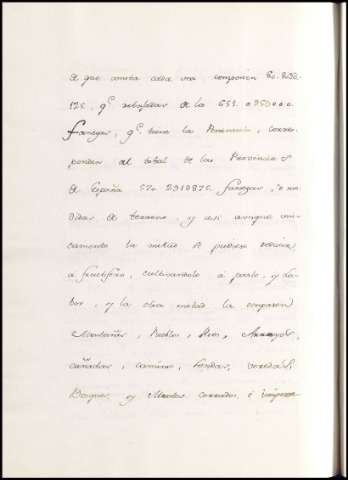 el que consta cada una, componen 80.
125. q.e rebajadas de la 653.
fanegas, q.e tiene la Peninsula, corres-
ponden al total de las Provincias
de España 572. 2910875. fanegas, o me-
didas de terreno, y asi aunque uni-
camente la mitad se pudiese reducir
a fructifero, cultivandolo á pasto, y la-
bor, y la otra mitad la ocupasen
Montañas, Pueblos, Rios, Arroyos,
cañadas, caminos, sendas, veredas,
Bosques, y Montes cerrados, é